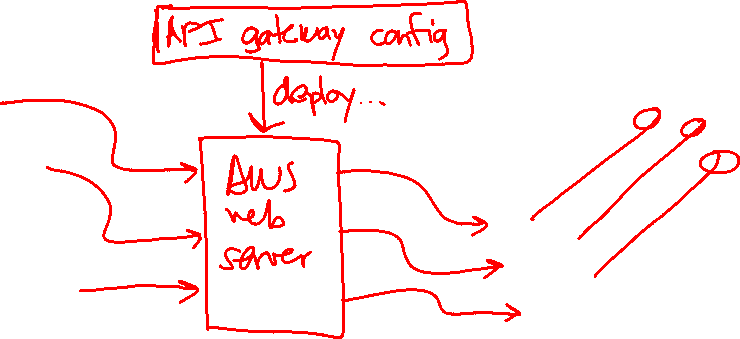 API gateway config
deploy...
AWS
web
server